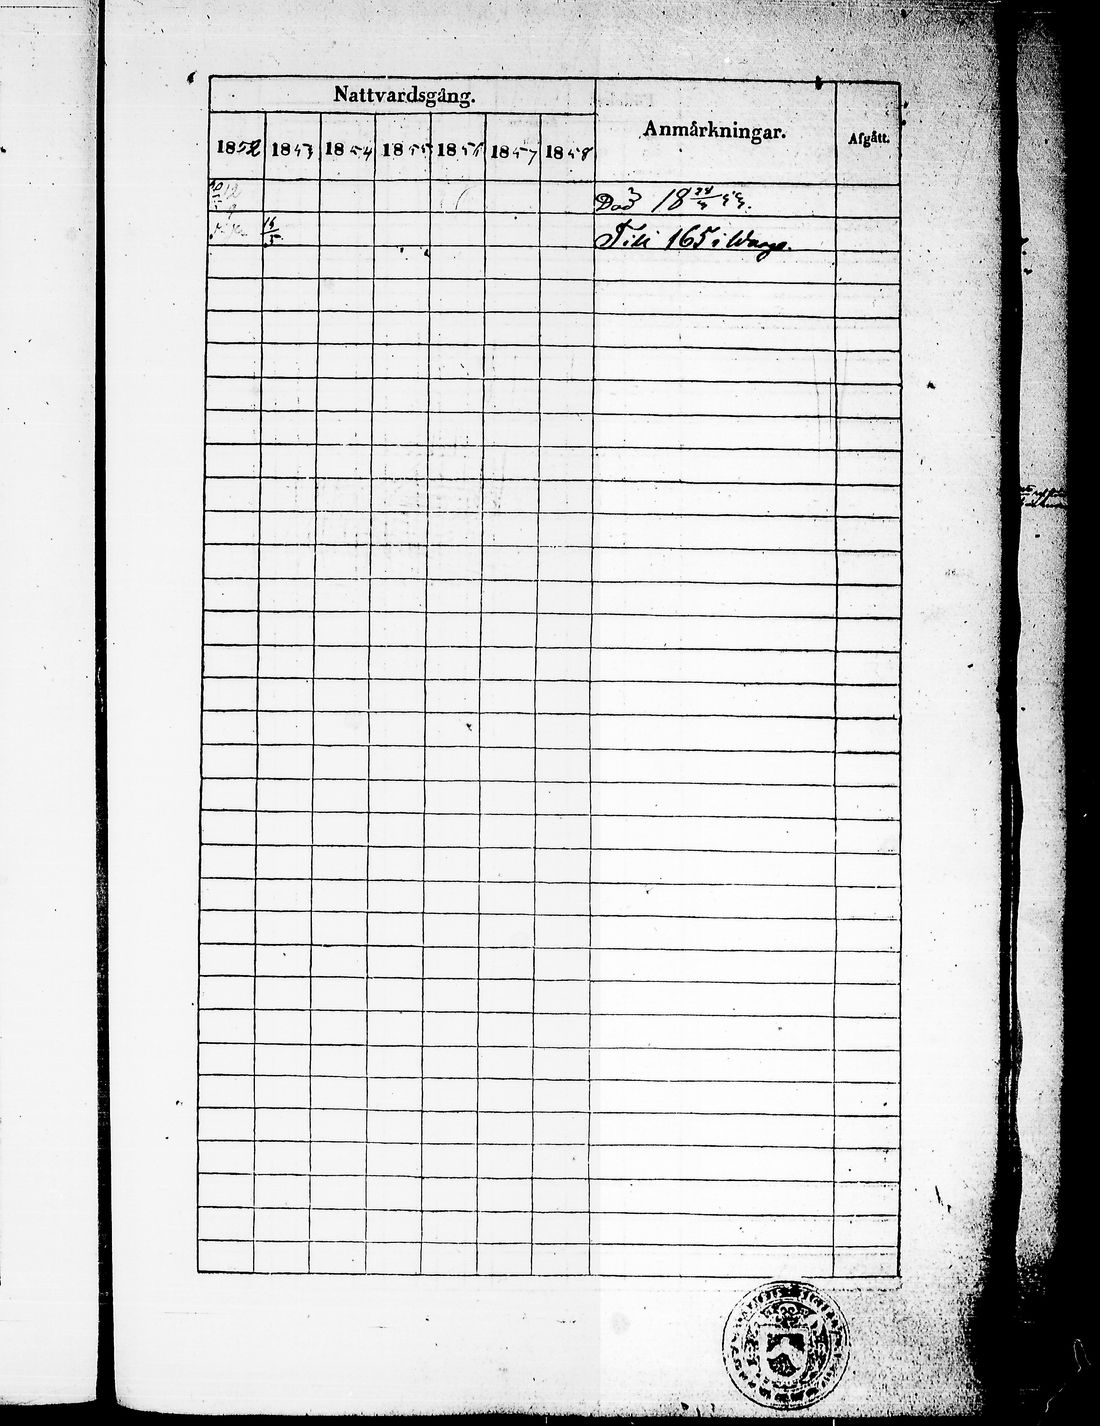 Nattvardsgång.
Anmärkningar.
Afgått.
1852 1853 1854 1855 1856 1857 1858
Död 18
16/5
Till 165 i